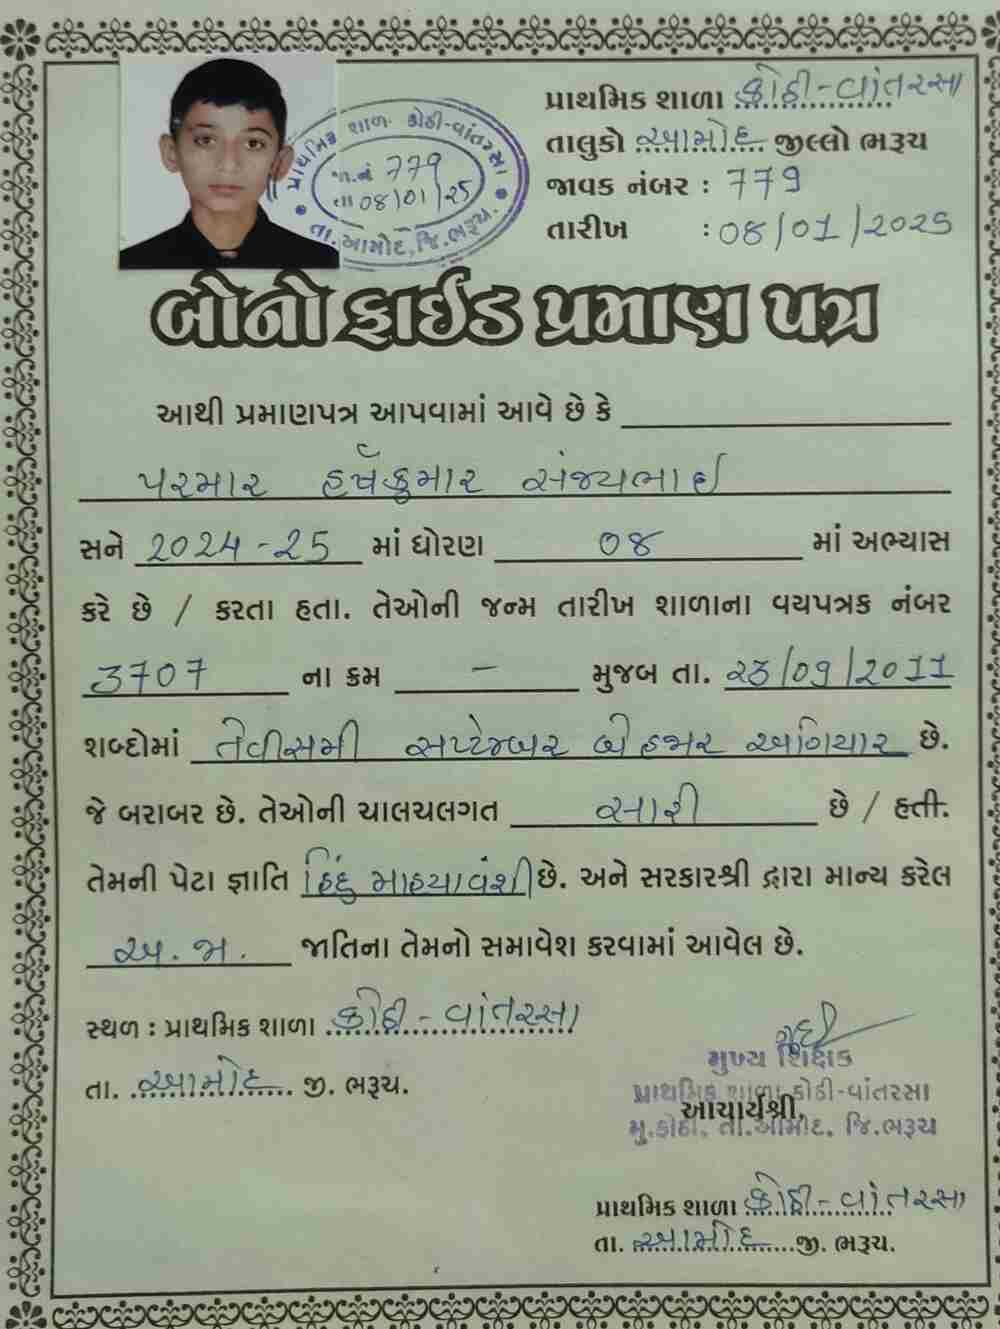 પ્રાથમિક શાળા કોઠી-વાંતરસા
તાલુકો આમોદ જીલ્લો ભરૂચ
જાવક નંબર : 779
તારીખ : 08/01/2025
પ્રાથમિક શાળા કોઠી-વાંતરસા
જા.નં 779
તા 08/01/25
તા.આમોદ, જિ.ભરૂચ.
બોનોફાઈડ પ્રમાણ પત્ર
આથી પ્રમાણપત્ર આપવામાં આવે છે કે
પરમાર હર્ષકુમાર સંજયભાઈ
સને 2024-25 માં ધોરણ 08 માં અભ્યાસ
કરે છે / કરતા હતા. તેઓની જન્મ તારીખ શાળાના વયપત્રક નંબર
3707 ના ક્રમ - મુજબ તા. 23/09/2011
શબ્દોમાં તેવીસમી સપ્ટેમ્બર બે હજાર અગિયાર છે.
જે બરાબર છે. તેઓની ચાલચલગત સારી છે / હતી.
તેમની પેટા જ્ઞાતિ હિંદુ માહયાવંશી છે. અને સરકારશ્રી દ્વારા માન્ય કરેલ
અ.જા. જાતિના તેમનો સમાવેશ કરવામાં આવેલ છે.
સ્થળ : પ્રાથમિક શાળા કોઠી-વાંતરસા
તા. આમોદ જી. ભરૂચ.
મુખ્ય શિક્ષક
પ્રાથમિક શાળા કોઠી-વાંતરસા
આચાર્યશ્રી,
મુ.કોઠી, તા.આમોદ, જિ.ભરૂચ
પ્રાથમિક શાળા કોઠી-વાંતરસા
તા. આમોદ જી. ભરૂચ.